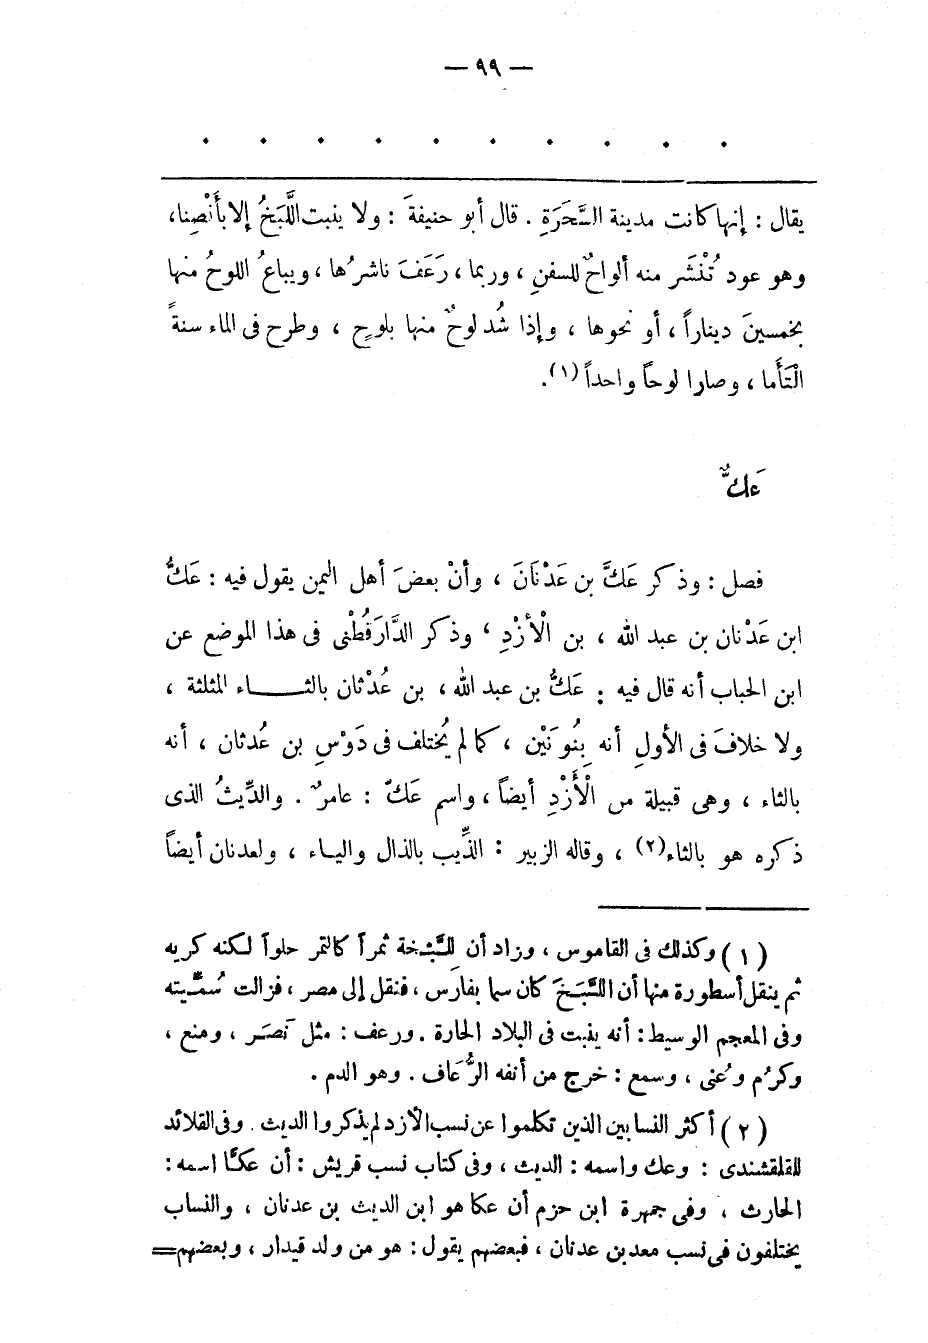 — ٩٩ —
. . . . . . . . . .
يقال : إنها كانت مدينة السَّحَرَةِ . قال أبو حنيفةَ : ولا ينبت اللَّبَخُ إلا بأَنْصِنا،
وهو عود تُنْشَر منه ألواحٌ للسفنِ ، وربما ، رَعَفَ ناشرُها ، ويباعُ اللوحُ منها
بخمسينَ ديناراً ، أو نحوها ، وإذا شُد لوحٌ منها بلوحٍ ، وطرح فى الماء سنةً
الْتَأَما ، وصارا لوحاً واحداً (١).
عَكٌّ
فصل : وذكر عَكَّ بن عَدْنَانَ ، وأنْ بعضَ أهل اليمن يقول فيه : عَكُّ
ابن عَدْنان بن عبد الله ، بن الْأَزْدِ ، وذكر الدَّارَقُطْنى فى هذا الموضع عن
ابن الحباب أنه قال فيه : عَكُّ بن عبد الله ، بن عُدْثان بالثاء المثلثة ،
ولا خلافَ فى الأولِ أنه بِنُونَيْن ، كما لم يُختلف فى دَوْسِ بن عُدثان ، أنه
بالثاء ، وهى قبيلة من الْأَزْدِ أيضاً ، واسم عَكّ : عامرٌ . والدِّيثُ الذى
ذكره هو بالثاء(٢) ، وقاله الزبير : الذِّيب بالذال والياء ، ولعدنان أيضاً
(١) وكذلك فى القاموس ، وزاد أن لِلَّبْخة ثمراً كالتمر حلواً لكنه كريه
ثم ينقل أسطورة منها أن اللَّبَخَ كان سما بفارس ، فنقل إلى مصر ، فزالت سُمِّيته
وفى المعجم الوسيط : أنه ينبت فى البلاد الحارة . ورعف : مثل نَصَر ، ومنع ،
وكرُم وعُنى ، وسمع : خرج من أنفه الرُّعَاف . وهو الدم .
(٢) أكثر النسابين الذين تكلموا عن نسب الأزد لم يذكروا الديث . وفى القلائد
للقلقشندى : وعك واسمه : الديث ، وفى كتاب نسب قريش : أن عكا اسمه :
الحارث ، وفى جمهرة ابن حزم أن عكا هو ابن الديث بن عدنان ، والنساب
يختلفون فى نسب معد بن عدنان ، فبعضهم يقول : هو من ولد قيدار ، وبعضهم =